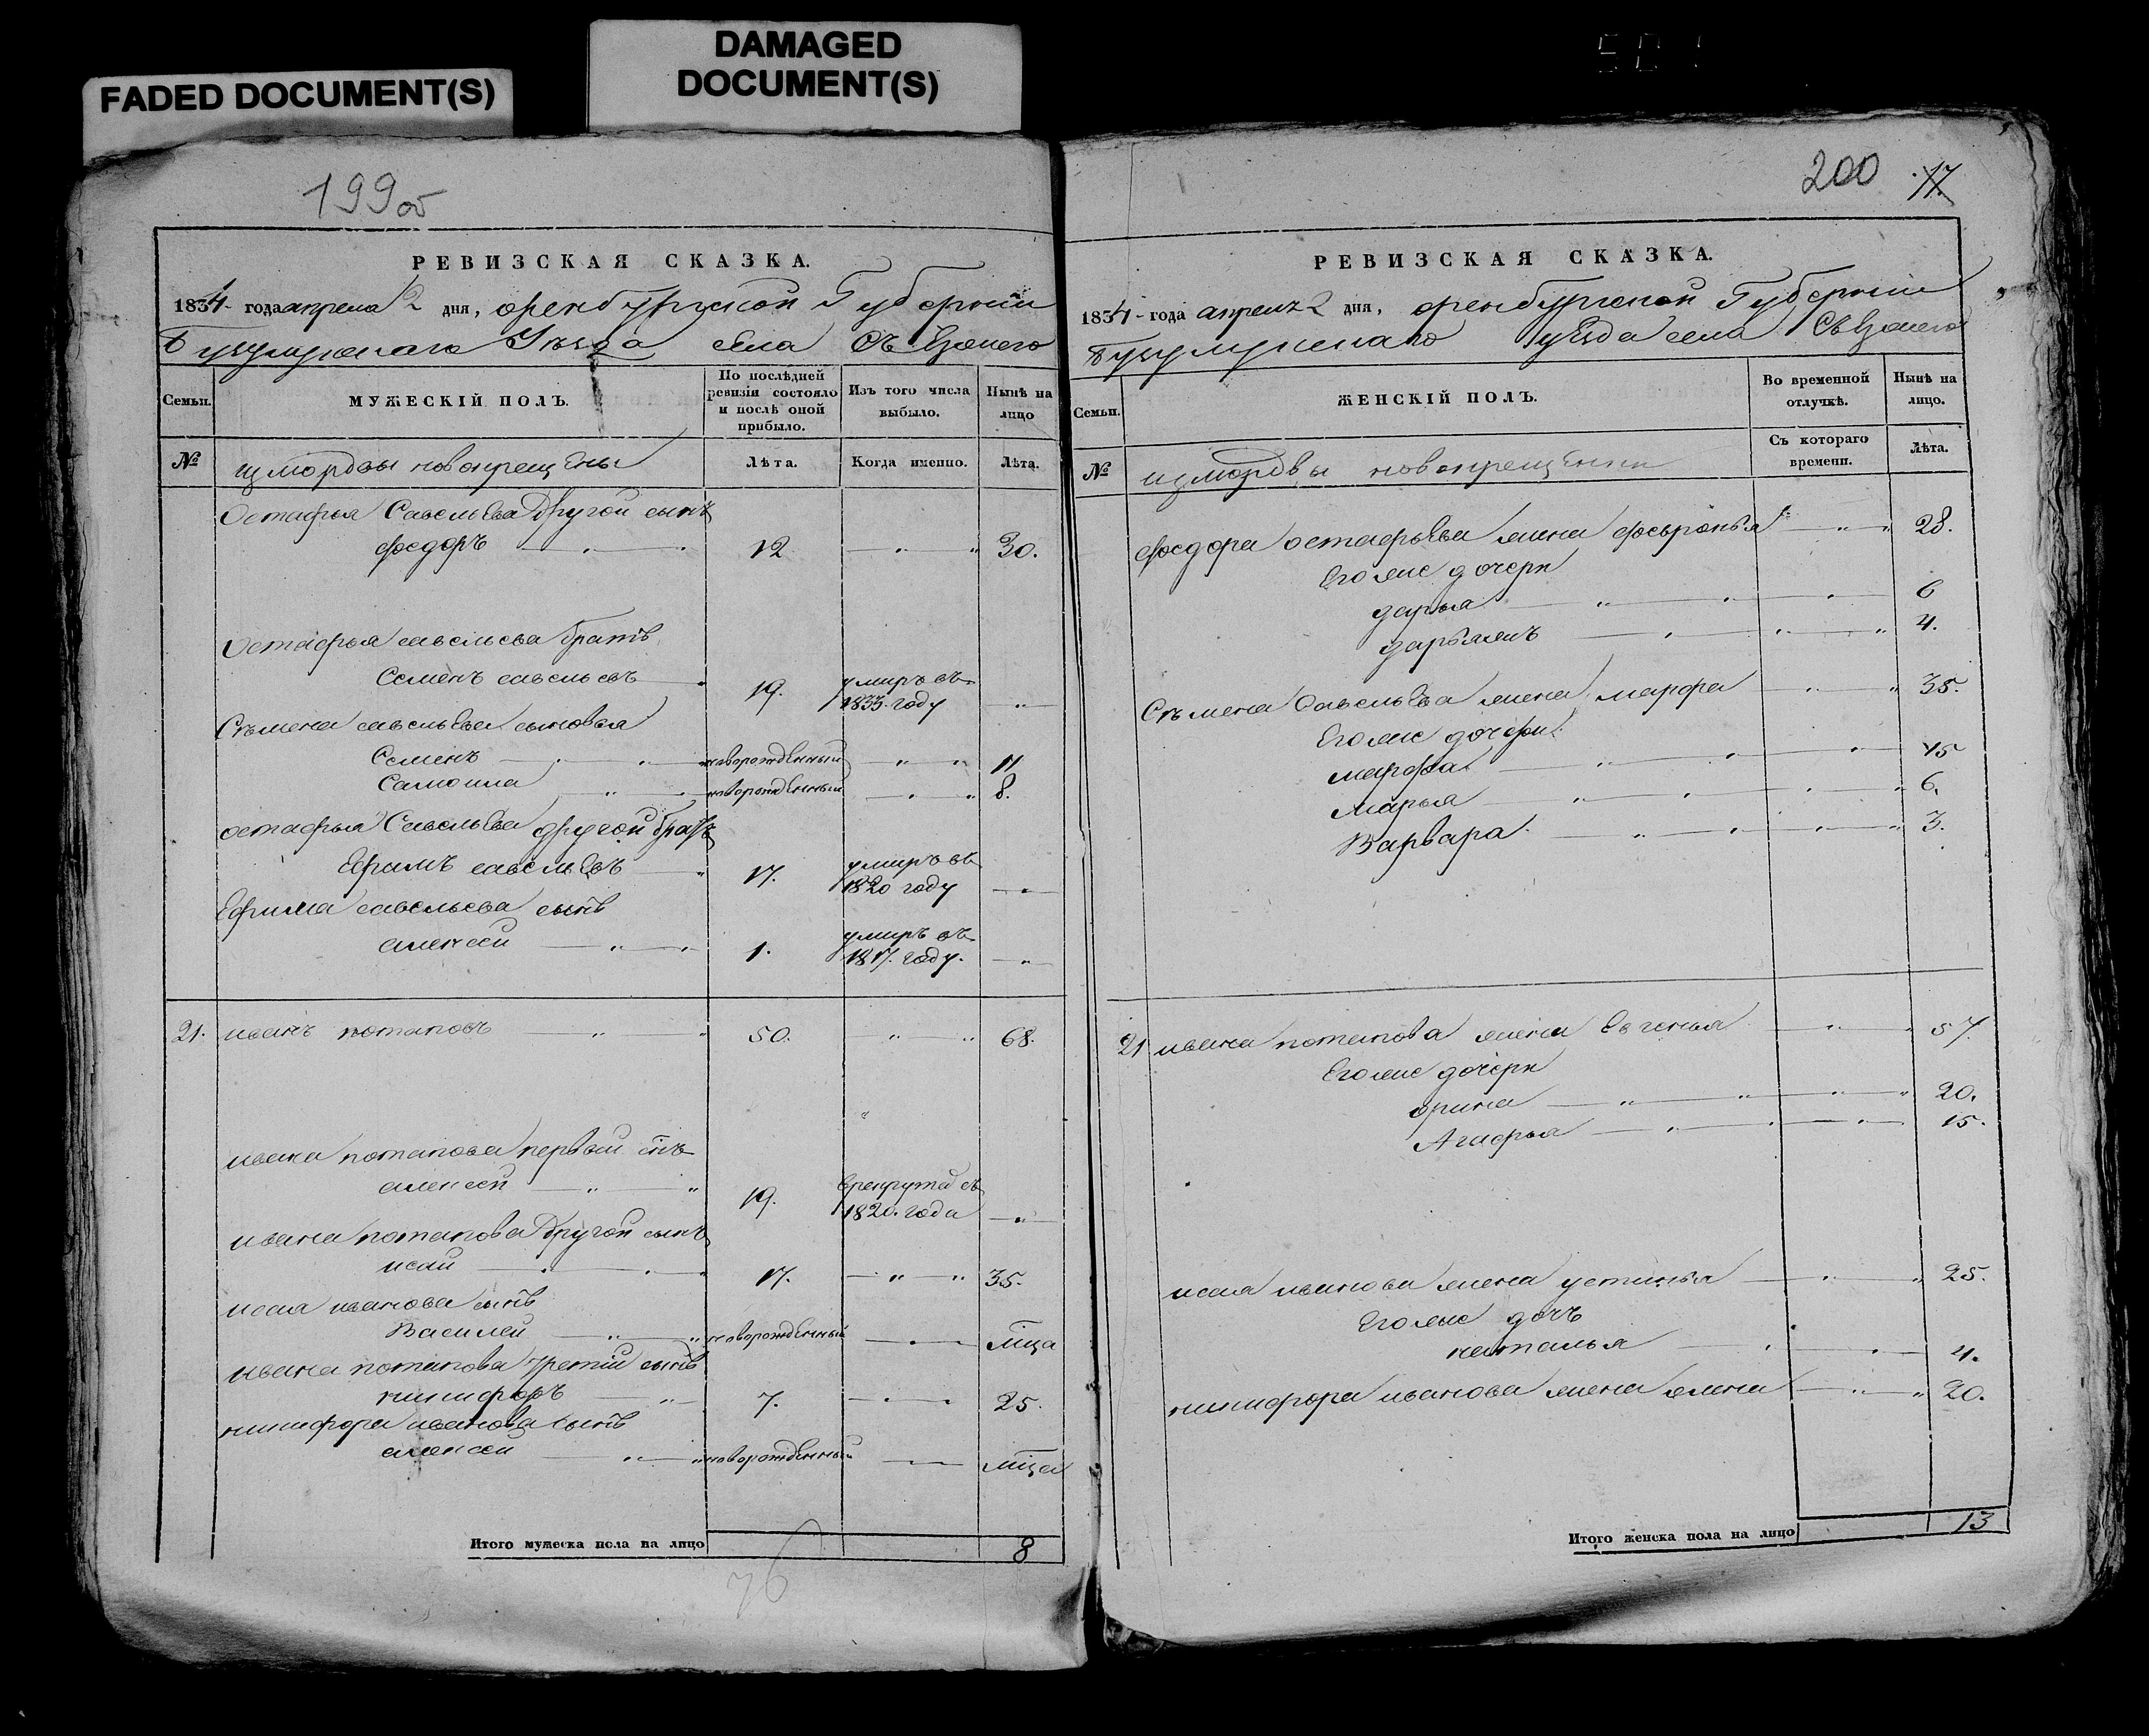 FADED DOCUMENT(S)
DAMAGED
DOCUMENT(S)
199об
РЕВИЗСКАЯ СКАЗКА.
1834 года апреля 2 дня, оренбургской Губернии
Бузулукскаго Уезда села Съезжего
Семьи.
МУЖЕСКІЙ ПОЛЪ.
По послѣдней ревизіи состояло и послѣ оной прибыло.
Изъ того числа выбыло.
Нынѣ на лицо
№ измордвы новокрещены
Лѣта. Когда именно. Лѣта.
Остафья Савельева другой сынъ
федоръ 12 30.
Остафья савельева братъ
Семенъ савельевъ 19. умиръ въ 1833. году
Съмена савельева сыновья
Семинъ новорожденный 11
Самоила новорожденный 8.
остафья Савельева другой братъ
Ефимъ савельевъ 17. умиръ въ 1820 году
Ефима савельева сынъ
алексей 1. умиръ въ 1817. году.
21. иванъ потаповъ 50. 68.
ивана потапова первый снъ
алексей 19. врекруты съ 1820. года
ивана потапова другой сынъ
исай 17. 35.
исая иванова сынъ
Василей новорожденный мца
ивана потапова третий сынъ
никифоръ 7. 25.
никифора иванова сынъ
алексей новорожденный мца
Итого мужеска пола на лицо 8
76
200 17.
РЕВИЗСКАЯ СКАЗКА.
1834 года апреля 2 дня, оренбургской Губернии
Бузулукскаго уезда села Съезжего
Семьи.
ЖЕНСКІЙ ПОЛЪ.
Во временной отлучкѣ.
Нынѣ на лицо.
№ измордвы новокрещенки
Съ котораго времени.
Лѣта.
федора остафьева жена февронья 28.
Егоже дочери
дарья 6
4.
Съмена Савельева жена марфа 35.
Егоже дочери
марфа 15
Марья 6.
Варвара 3.
21 ивана потапова жена Евгенья 57.
Егоже дочери
орина 20.
Агафья 15.
исая иванова жена устинья 25.
Егоже дочь
наталья 4.
никифора иванова жена алена 20.
Итого женска пола на лицо 13